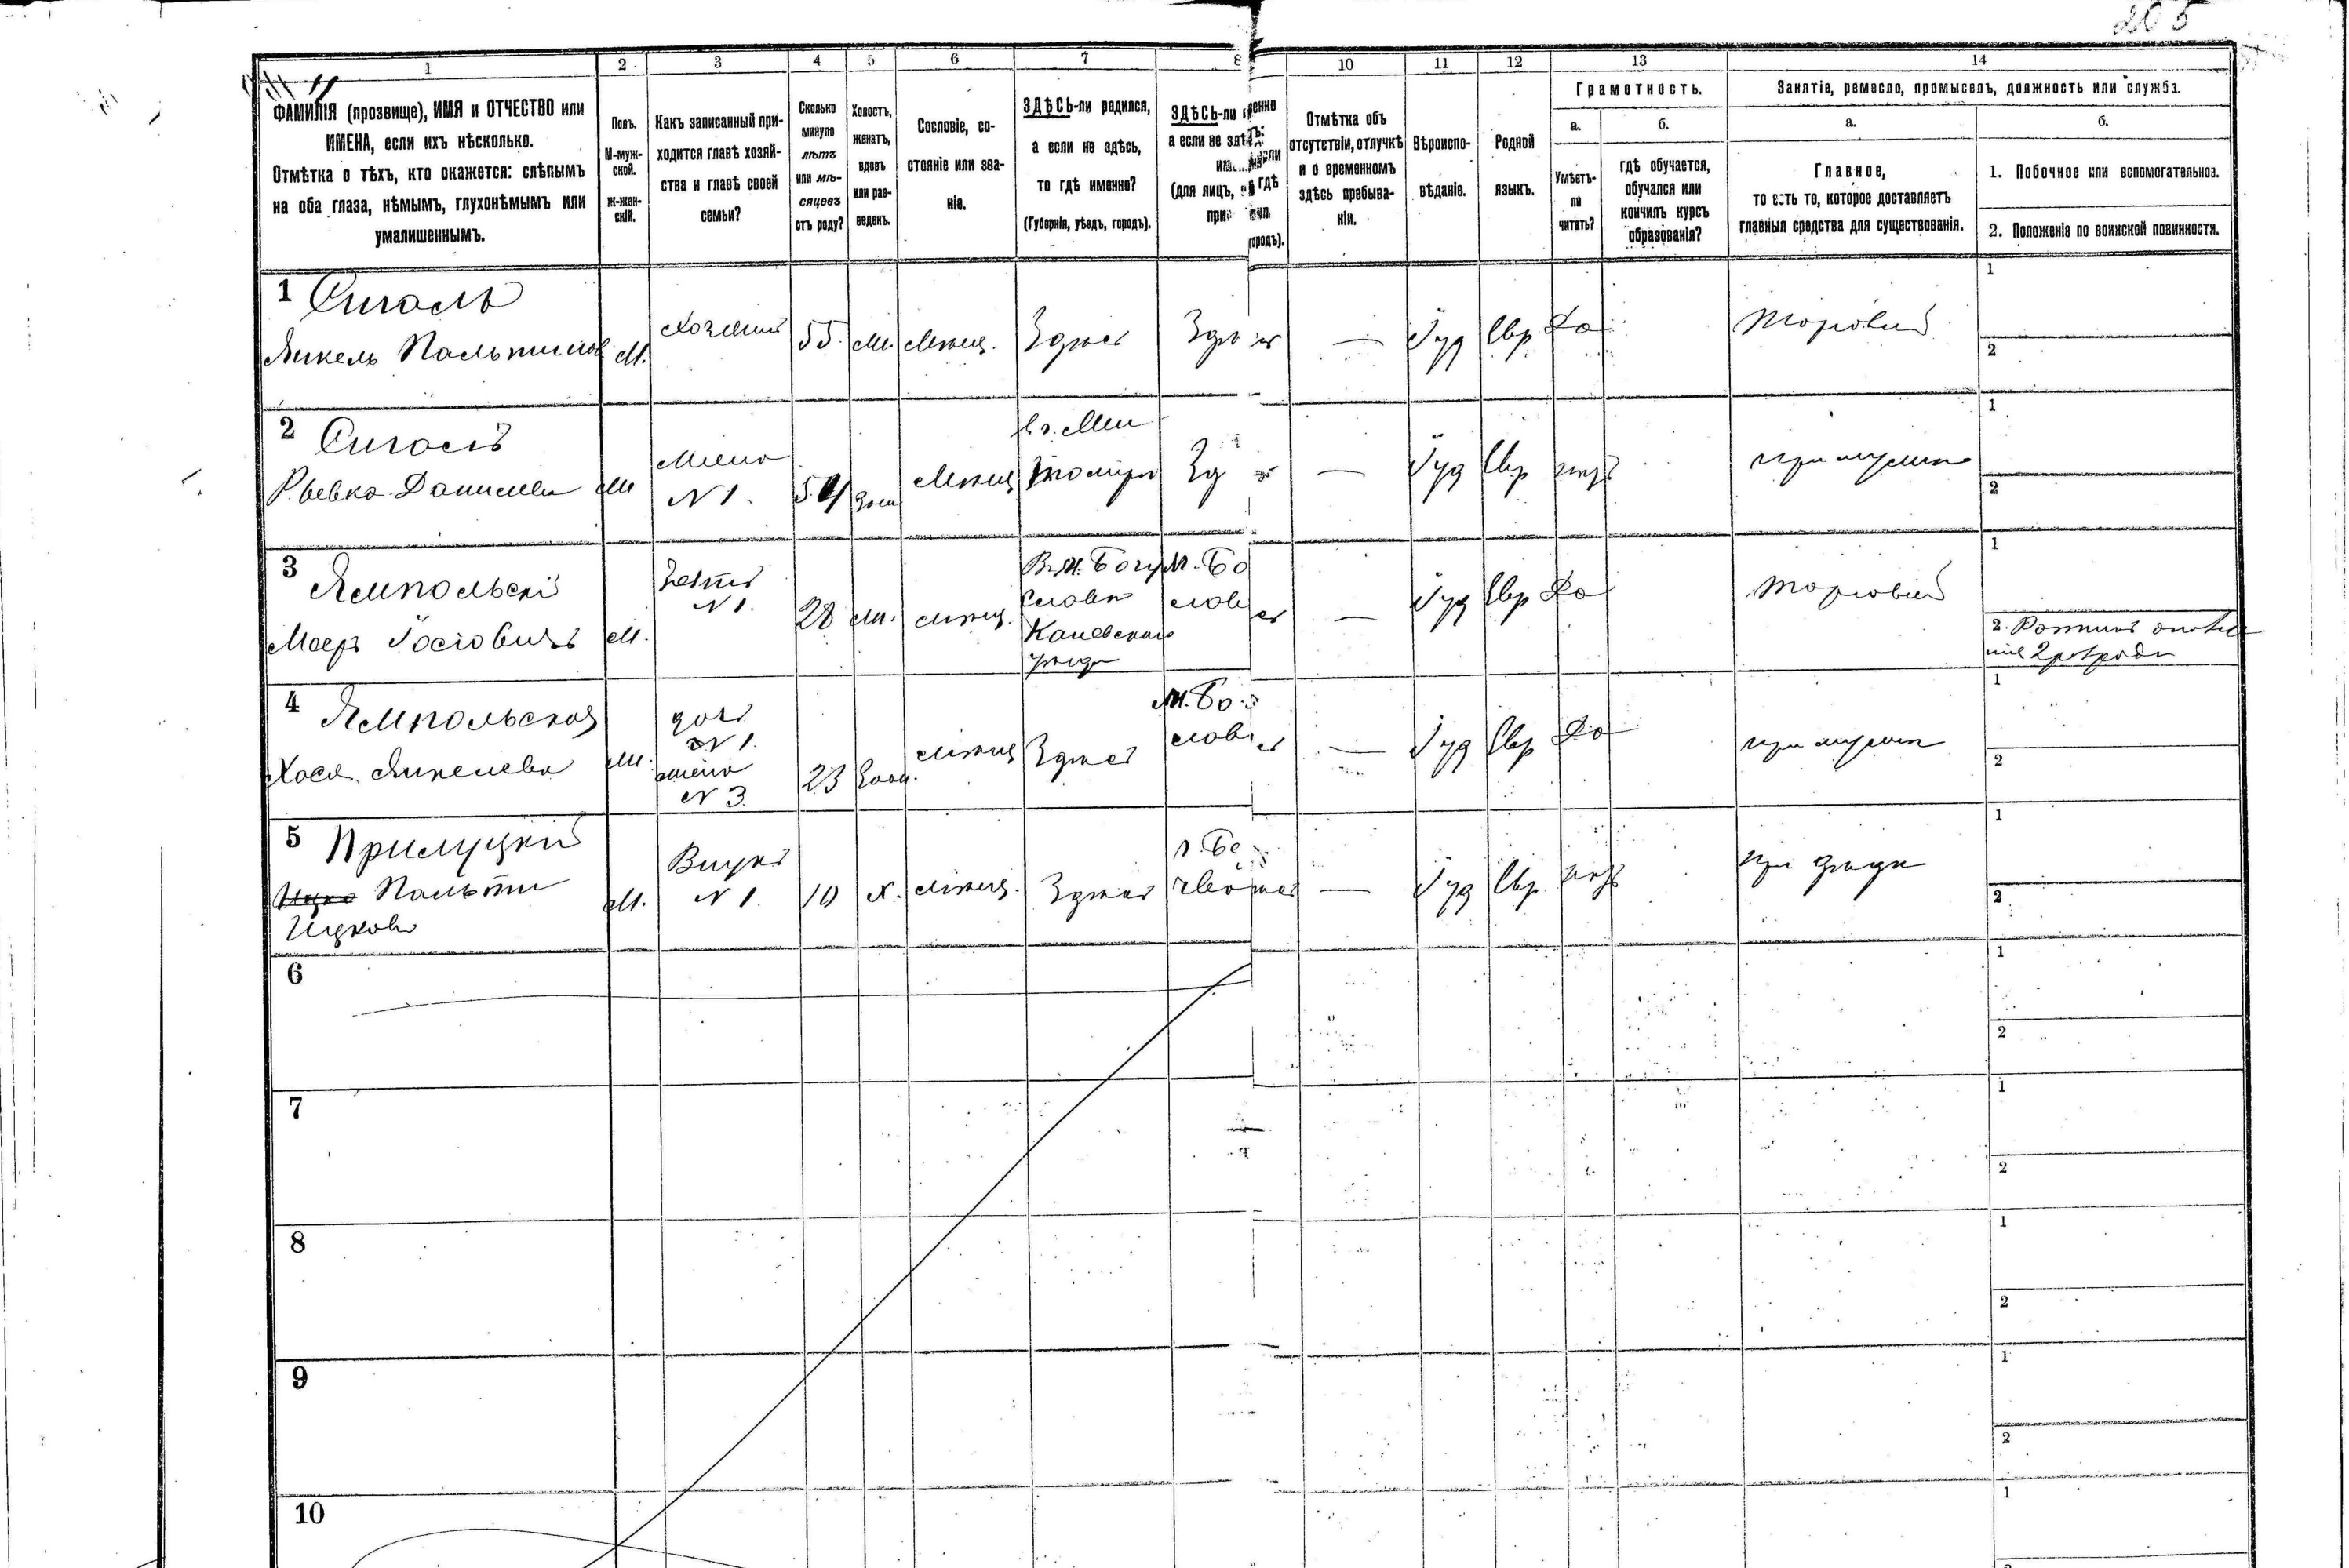 205
11
1 2 3 4 5 6 7 8 10 11 12 13 14
ФАМИЛІЯ (прозвище), ИМЯ и ОТЧЕСТВО или
ИМЕНА, если ихъ нѣсколько.
Отмѣтка о тѣхъ, кто окажется: слѣпымъ
на оба глаза, нѣмымъ, глухонѣмымъ или
умалишеннымъ.
Полъ.
М-муж-
ской.
ж-жен-
скій.
Какъ записанный при-
ходится главѣ хозяй-
ства и главѣ своей
семьи?
Сколько
минуло
лѣтъ
или мѣ-
сяцевъ
отъ роду?
Холостъ,
женатъ,
вдовъ
или раз-
веденъ.
Сословіе, со-
стояніе или зва-
ніе.
ЗДѢСЬ-ли родился,
а если не здѣсь,
то гдѣ именно?
(Губернія, уѣздъ, городъ).
ЗДѢСЬ-ли
а если не
(для лицъ,
при
городъ).
Отмѣтка объ
отсутствіи, отлучкѣ
и о временномъ
здѣсь пребыва-
ніи.
Вѣроиспо-
вѣданіе.
Родной
языкъ.
Грамотность.
а.
Умѣетъ-
ли
читать?
б.
гдѣ обучается,
обучался или
кончилъ курсъ
образованія?
Занятіе, ремесло, промыселъ, должность или служба.
а.
Главное,
то есть то, которое доставляетъ
главныя средства для существованія.
б.
1. Побочное или вспомогательное.
2. Положеніе по воинской повинности.
1 Сигаль
Янкель Пальтиилов М. Хозяинъ 55 Мѣщ. Здѣсь Зд — Іуд Евр Да Торговый
1
2
2 Сигалъ
Рывка Данилева Жена
N 1. 54 Мѣщ Зд — Іуд Евр нѣтъ при мужѣ
1
2
3 Ямпольскій
Моеръ Іосіовичъ М. Зять
N 1. 28 мѣщ. В м. Богу
славѣ
Каневскаго
уѣзда
М. Бо
слов — Іуд Евр Да Торговый
1
2. Ратникъ ополче
нія 2 разряда
4 Ямпольская
Хася Янкелева дочь
N 1.
жена
N 3. 23 мѣщ Здѣсь М. Бо
слов — Іуд Евр Да при мужѣ
1
2
5 Прилуцкій
Пальти
Ицковъ М. Внукъ
N 1. 10 х. мѣщ. Здѣсь — Іуд Евр нѣтъ при дѣдѣ
1
2
6
1
2
7
1
2
8
1
2
9
1
2
10
1